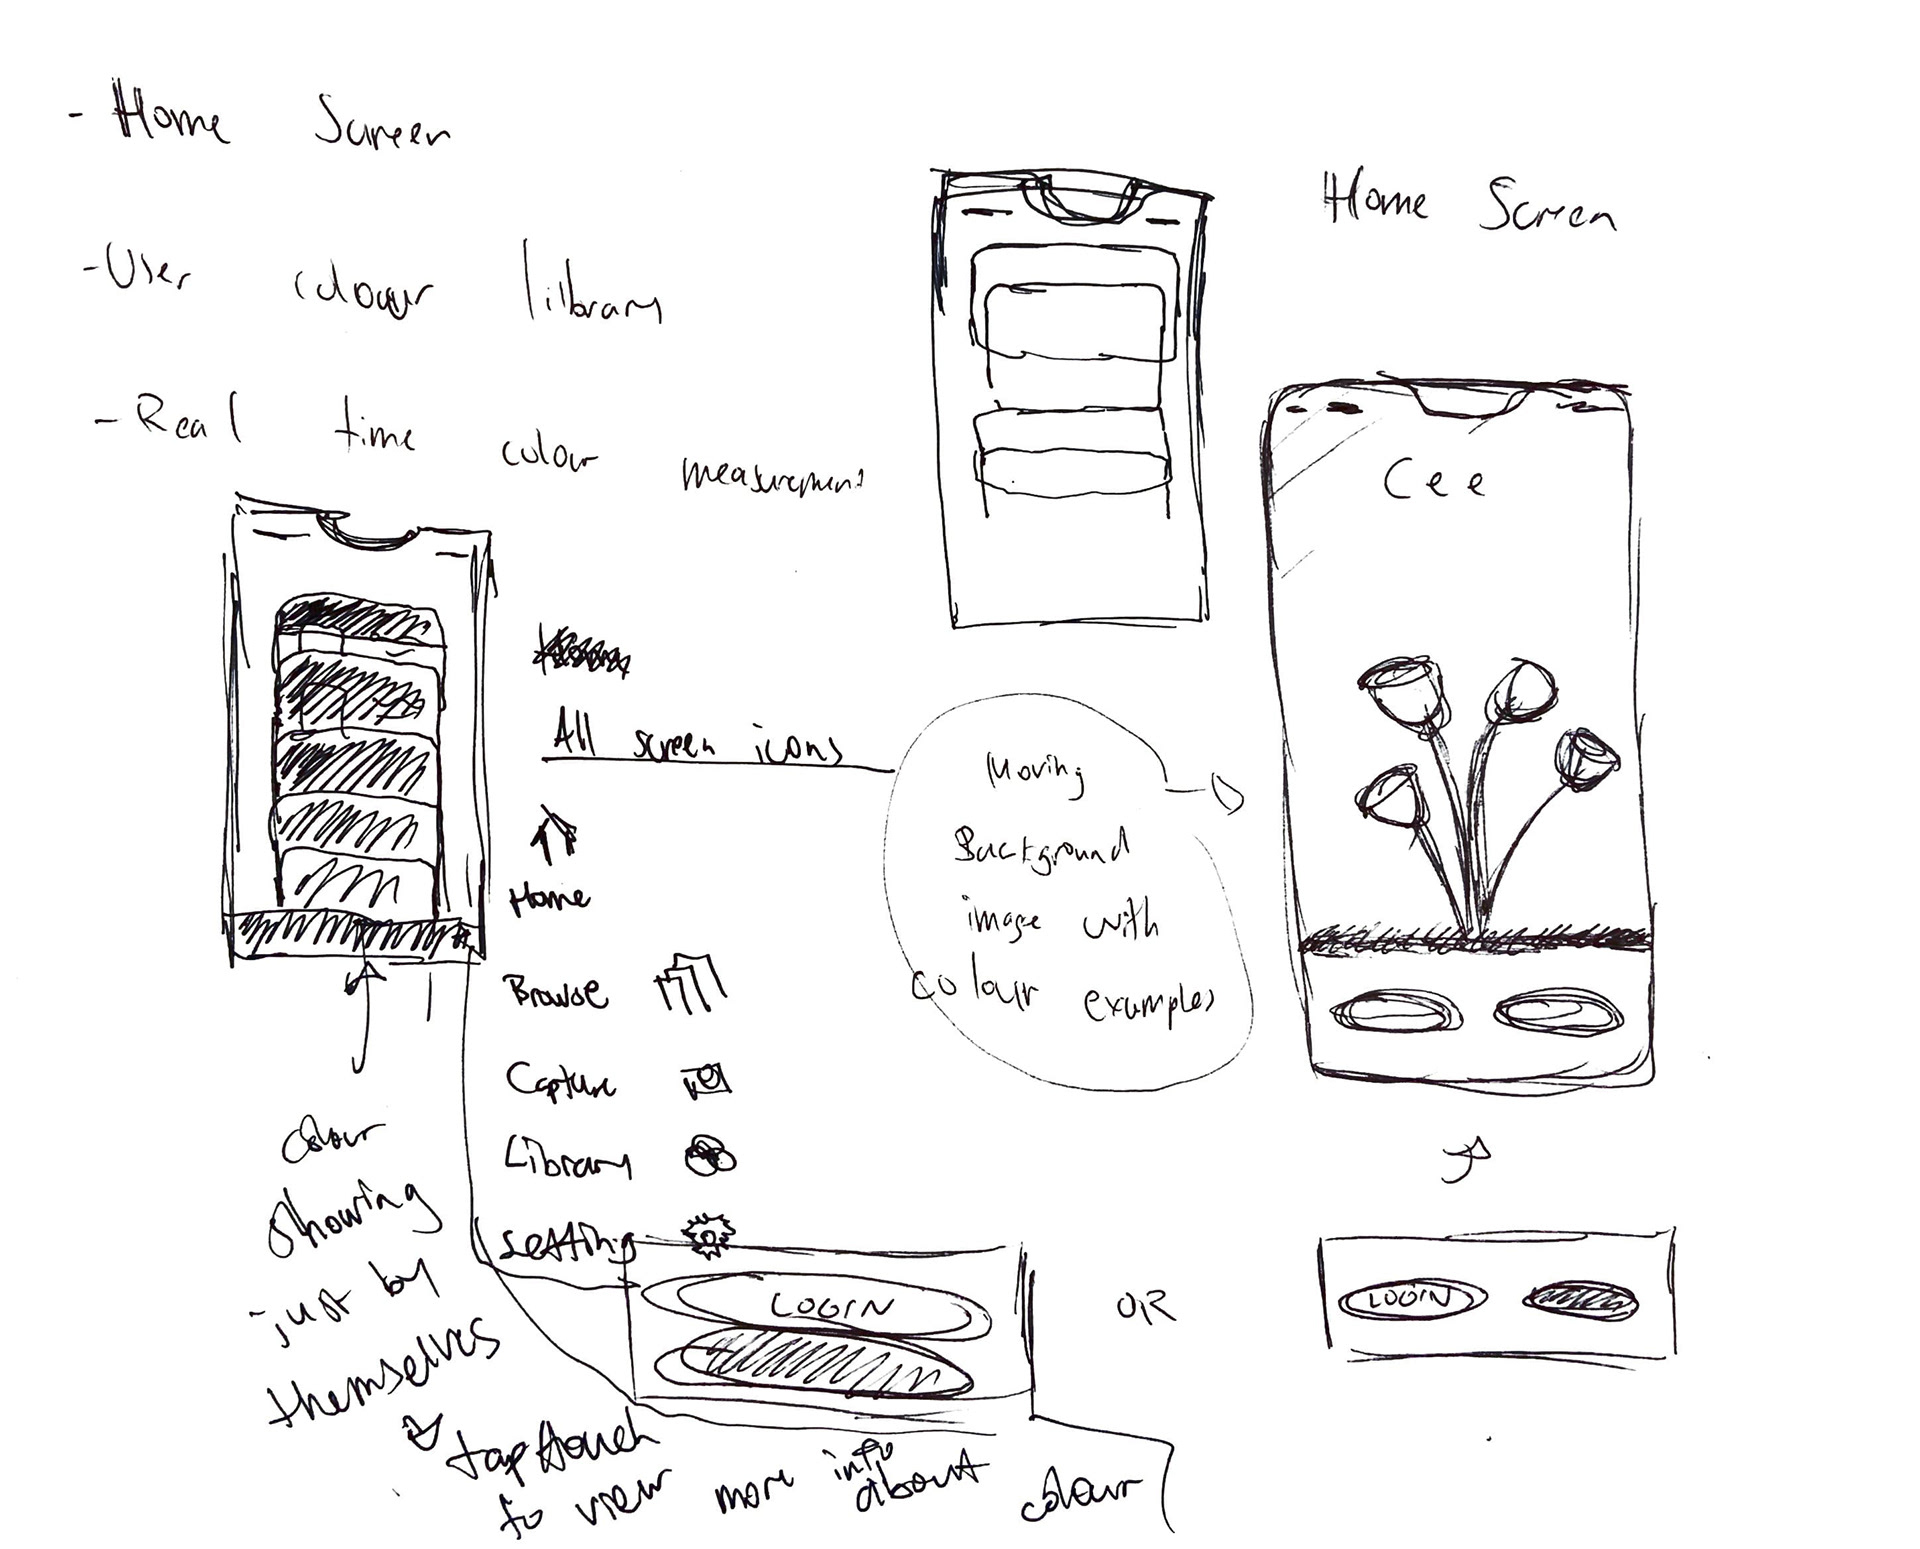 - Home Screen
- User colour library
- Real time colour measurement
Home Screen
Cee
All screen icons
Home
Browse
Capture
Library
Setting
Moving
Background
image with
colour examples
LOGIN
OR
LOGIN
colour
showing
just by
themselves
tap touch
to view more info
about colour